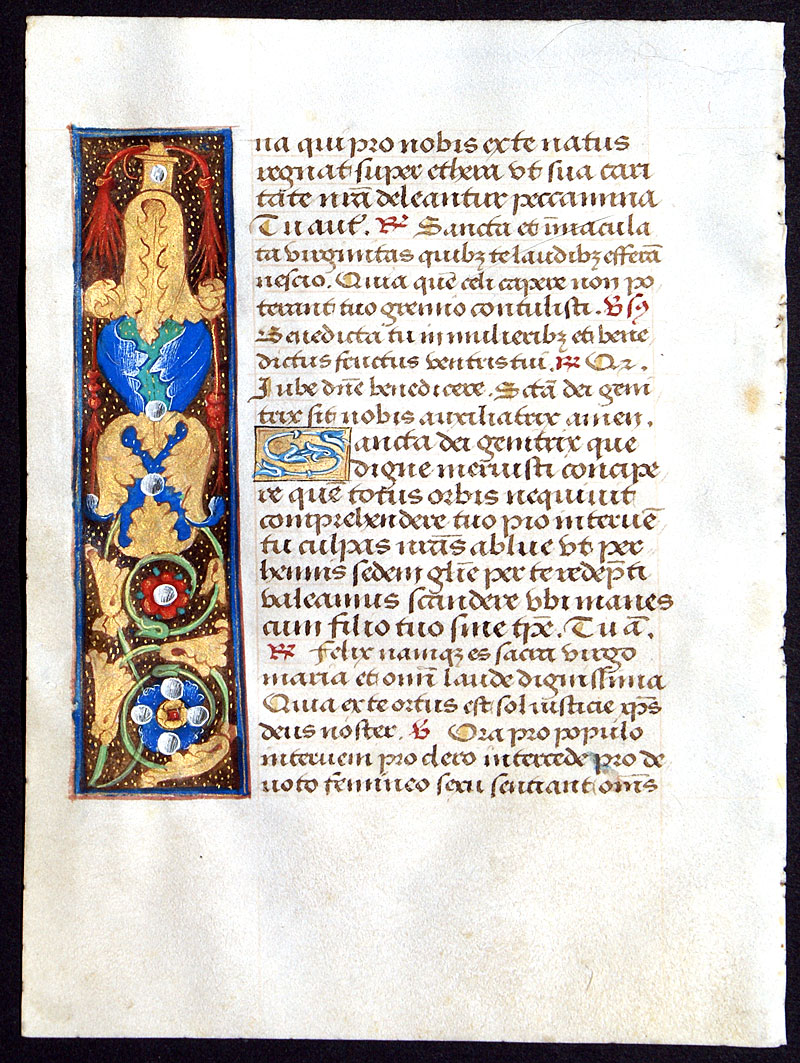 na qui pro nobis ex te natus
regnat super ethera vt sua cari
tate nrā deleantur peccamina
Tu aut̄. R̷ Sancta et īmacula
ta virginitas quibꝫ te laudibꝫ efferā
nescio. Quia quē celi capere non po
terant tuo gremio contulisti. V̷sꝯ
Benedicta tu in mulieribꝫ et bene
dictus fructus ventris tui. R̷ Qꝛ.
Jube dn̄e benedicere. Sctā dei geni
trix sit nobis auxiliatrix amen.
Sancta dei genitrix que
digne meruisti concipe
re quē totus orbis nequiuit
comprehendere tuo pio interuē
tu culpas nrās ablue vt per
hennis sedem glīe per te redēpti
valeamus scandere vbi manes
cum filio tuo sine tp̄e. Tu ā.
R̷ Felix namqꝫ es sacra virgo
maria et omni laude dignissima
Quia ex te ortus est sol iusticie xp̄s
deus noster. V̷ Ora pro populo
interueni pro clero intercede pro de
uoto femineo sexu sentiant om̄s